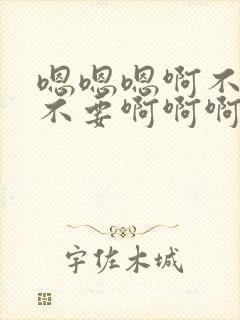 嗯嗯嗯啊不
不要啊啊啊
宇佐木城